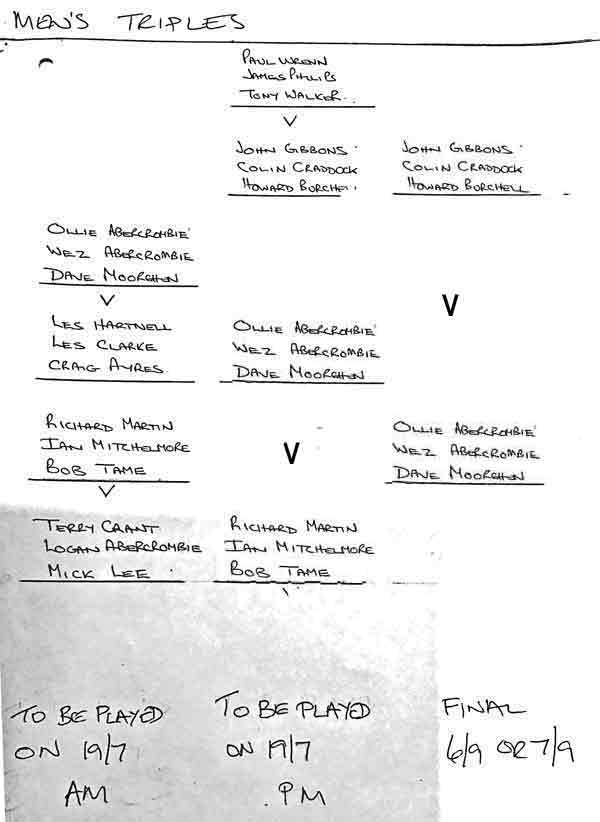 MEN'S TRIPLES
PAUL WRENN
JAMES PHILLIPS
TONY WALKER
V
JOHN GIBBONS
COLIN CRADDOCK
HOWARD BURCHELL
JOHN GIBBONS
COLIN CRADDOCK
HOWARD BURCHELL
OLLIE ABERCROMBIE
WEZ ABERCROMBIE
DAVE MOORSHON
V
LES HARTNELL
LES CLARKE
CRAIG AYRES
OLLIE ABERCROMBIE
WEZ ABERCROMBIE
DAVE MOORSHON
V
RICHARD MARTIN
IAN MITCHELMORE
BOB TAME
V
TERRY GRANT
LOGAN ABERCROMBIE
MICK LEE
V
RICHARD MARTIN
IAN MITCHELMORE
BOB TAME
OLLIE ABERCROMBIE
WEZ ABERCROMBIE
DAVE MOORSHON
TO BE PLAYED
ON 19/7
AM
TO BE PLAYED
ON 19/7
PM
FINAL
6/9 OR 7/9